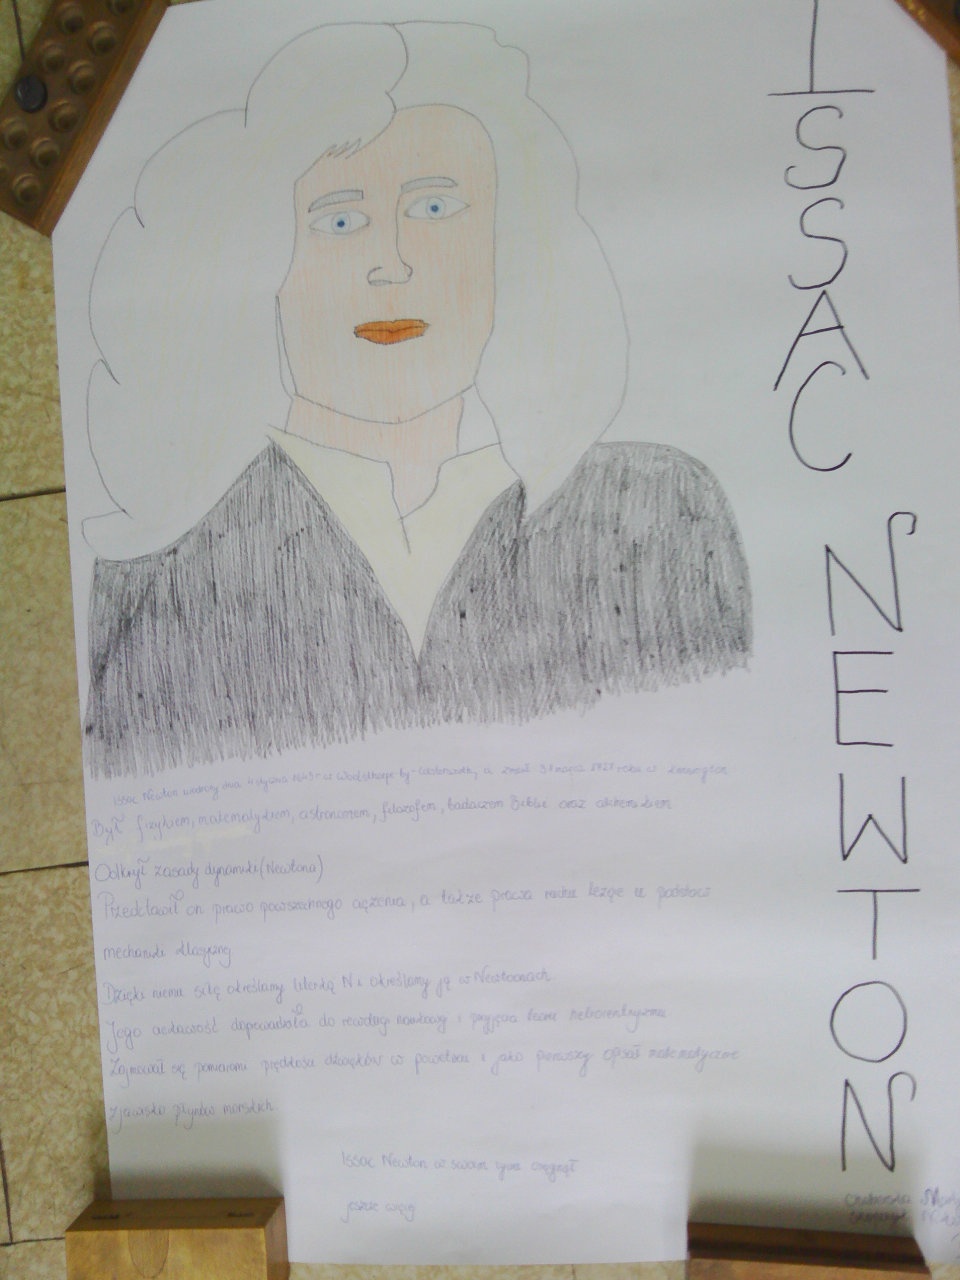 ISSAC NEWTON
Issac Newton urodzony dnia 4 stycznia 1643 r w Woolsthorpe-by-Colsterworth, a zmarł 31 marca 1727 roku w
Był fizykiem, matematykiem, astronomem, filozofem, badaczem Biblii oraz alchemikiem
Odkrył zasady dynamiki (Newtona)
Przedstawił on prawo powszechnego ciążenia, a także prawa ruchu leżące u podstaw
mechaniki klasycznej
Dzięki niemu siłę określamy literką N i określamy ją w Newtonach.
Jego doprowadziła do rewolucji naukowej i przyjęcia teorii heliocentryzmu
Zajmował się pomiarami prędkości dźwięków w powietrzu i jako pierwszy opisał matematycznie
zjawisko pływów morskich.
Issac Newton w swoim życiu osiągnął
jeszcze więcej